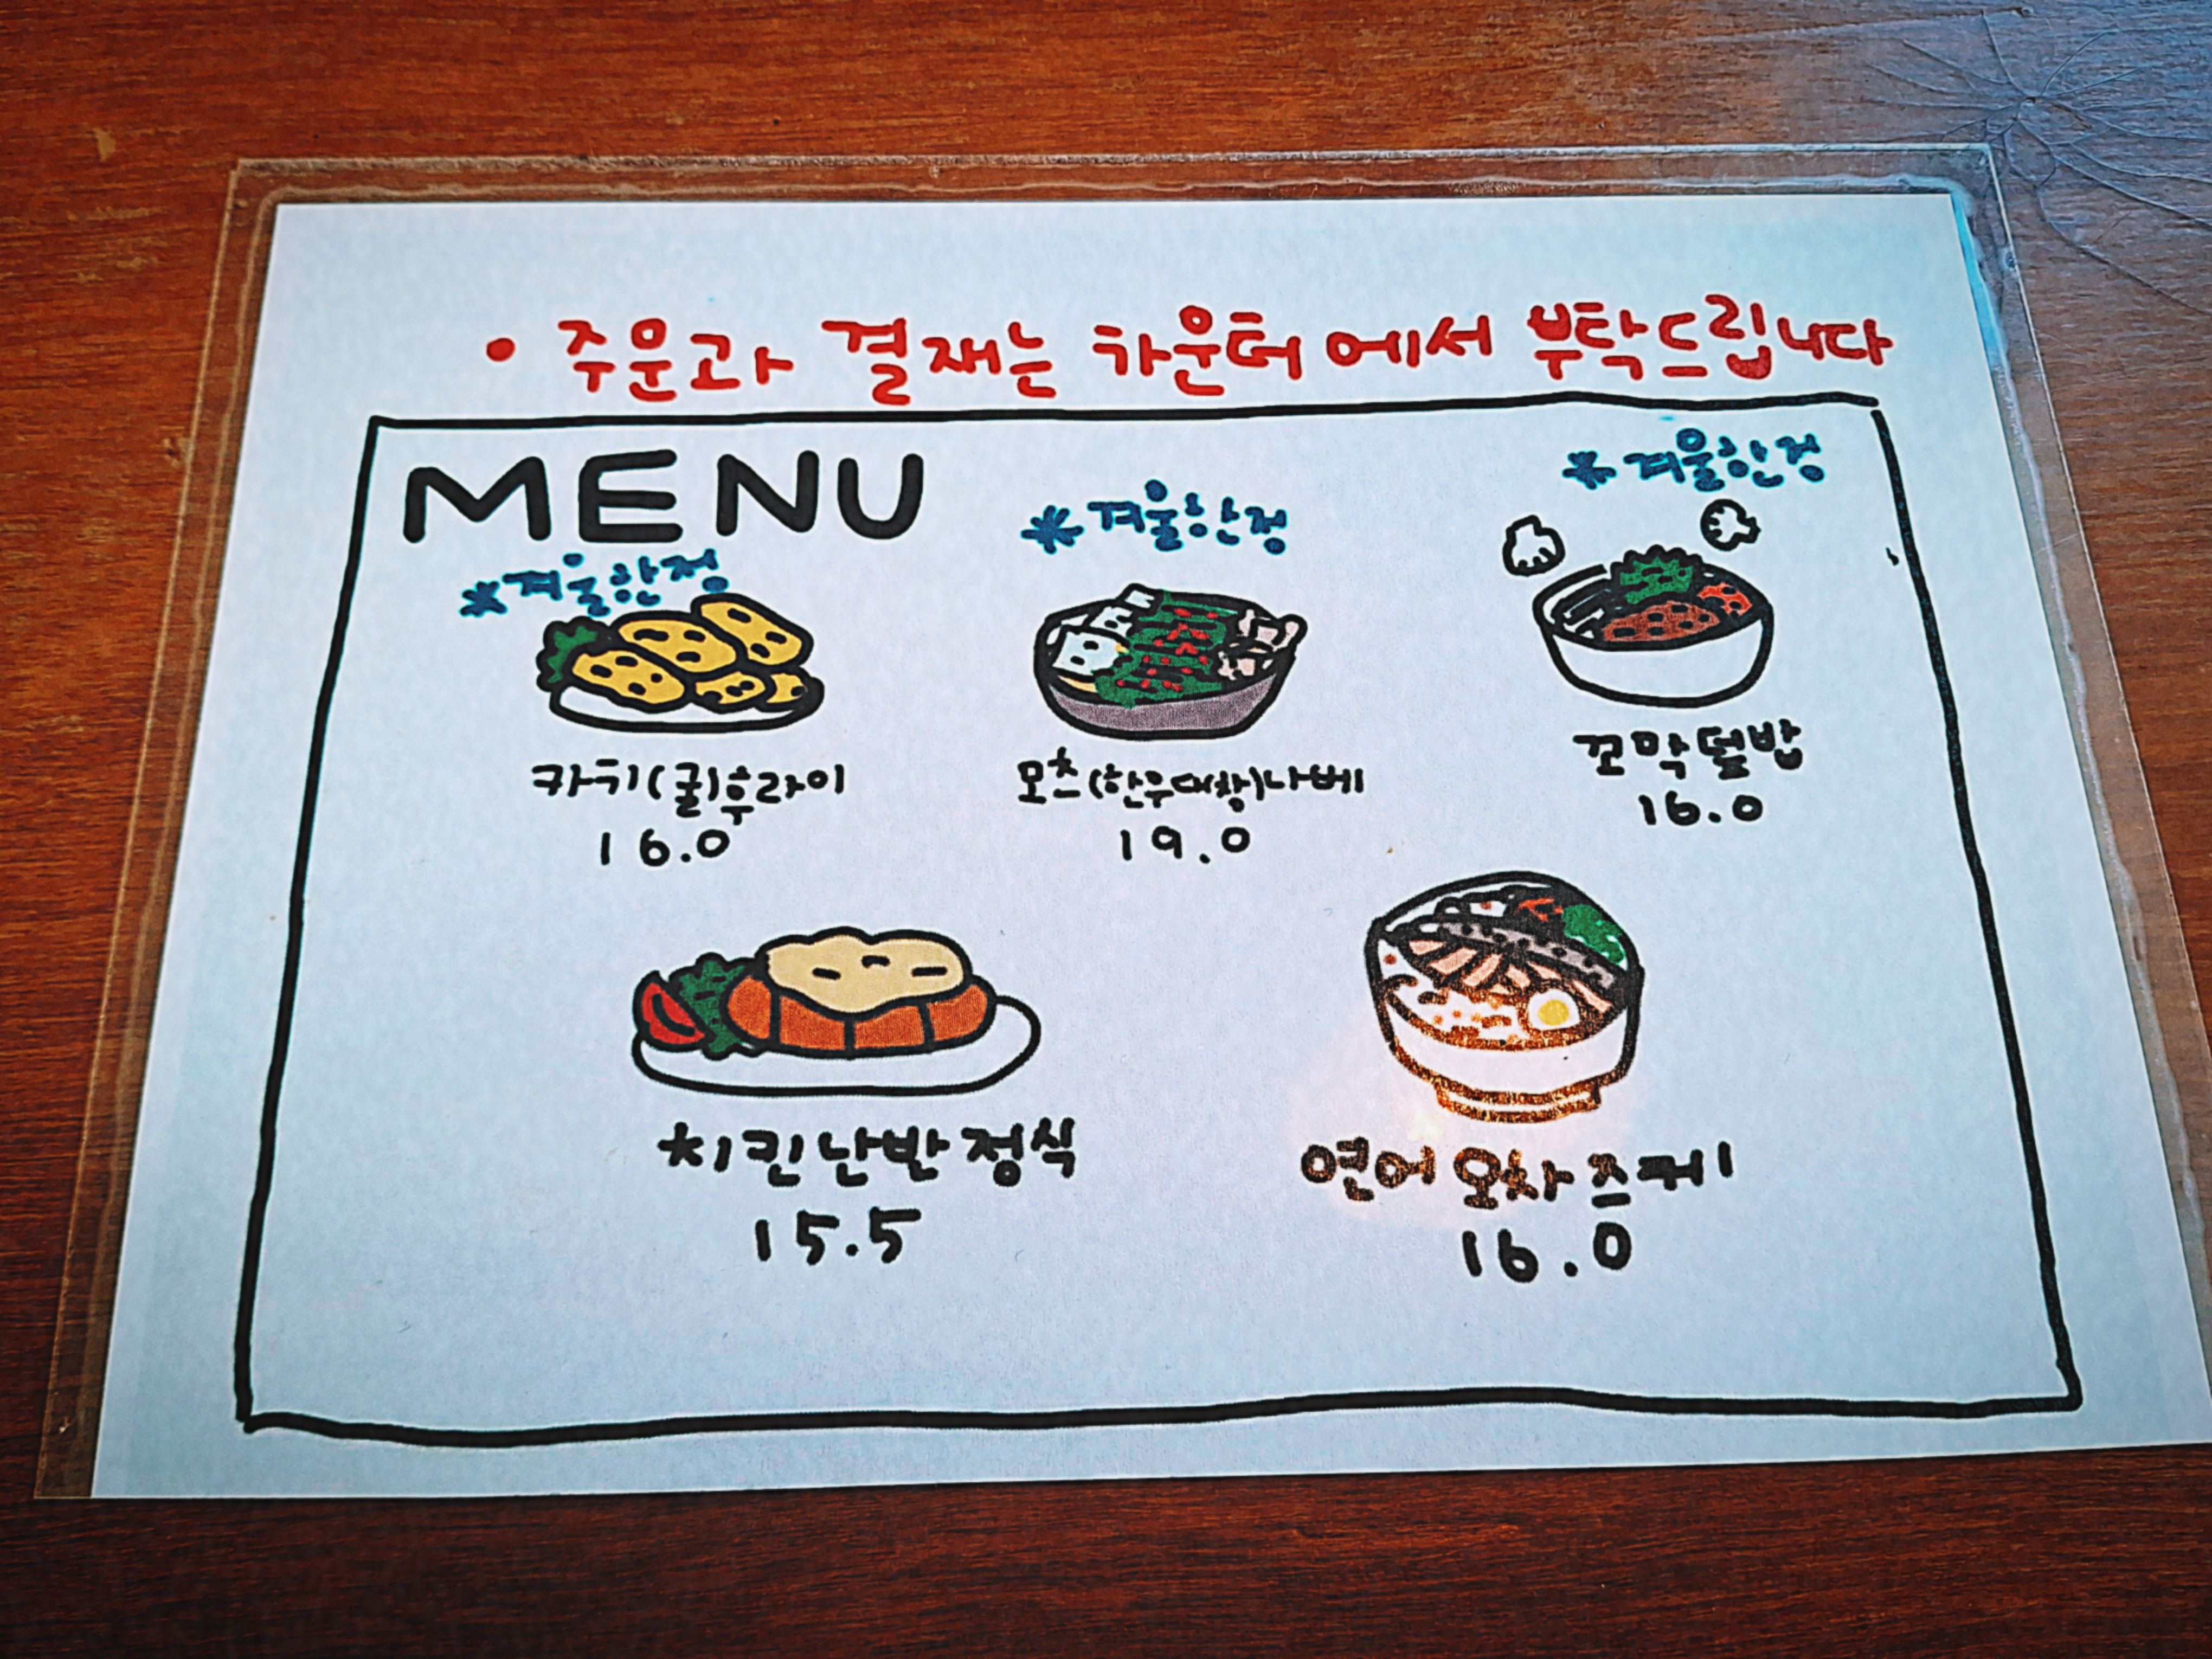 • 주문과 결재는 카운터에서 부탁드립니다
MENU
*겨울한정
카키(굴)후라이
16.0
*겨울한정
모츠(한우대창)나베
19.0
*겨울한정
꼬막덮밥
16.0
치킨난반정식
15.5
연어 오차즈케
16.0